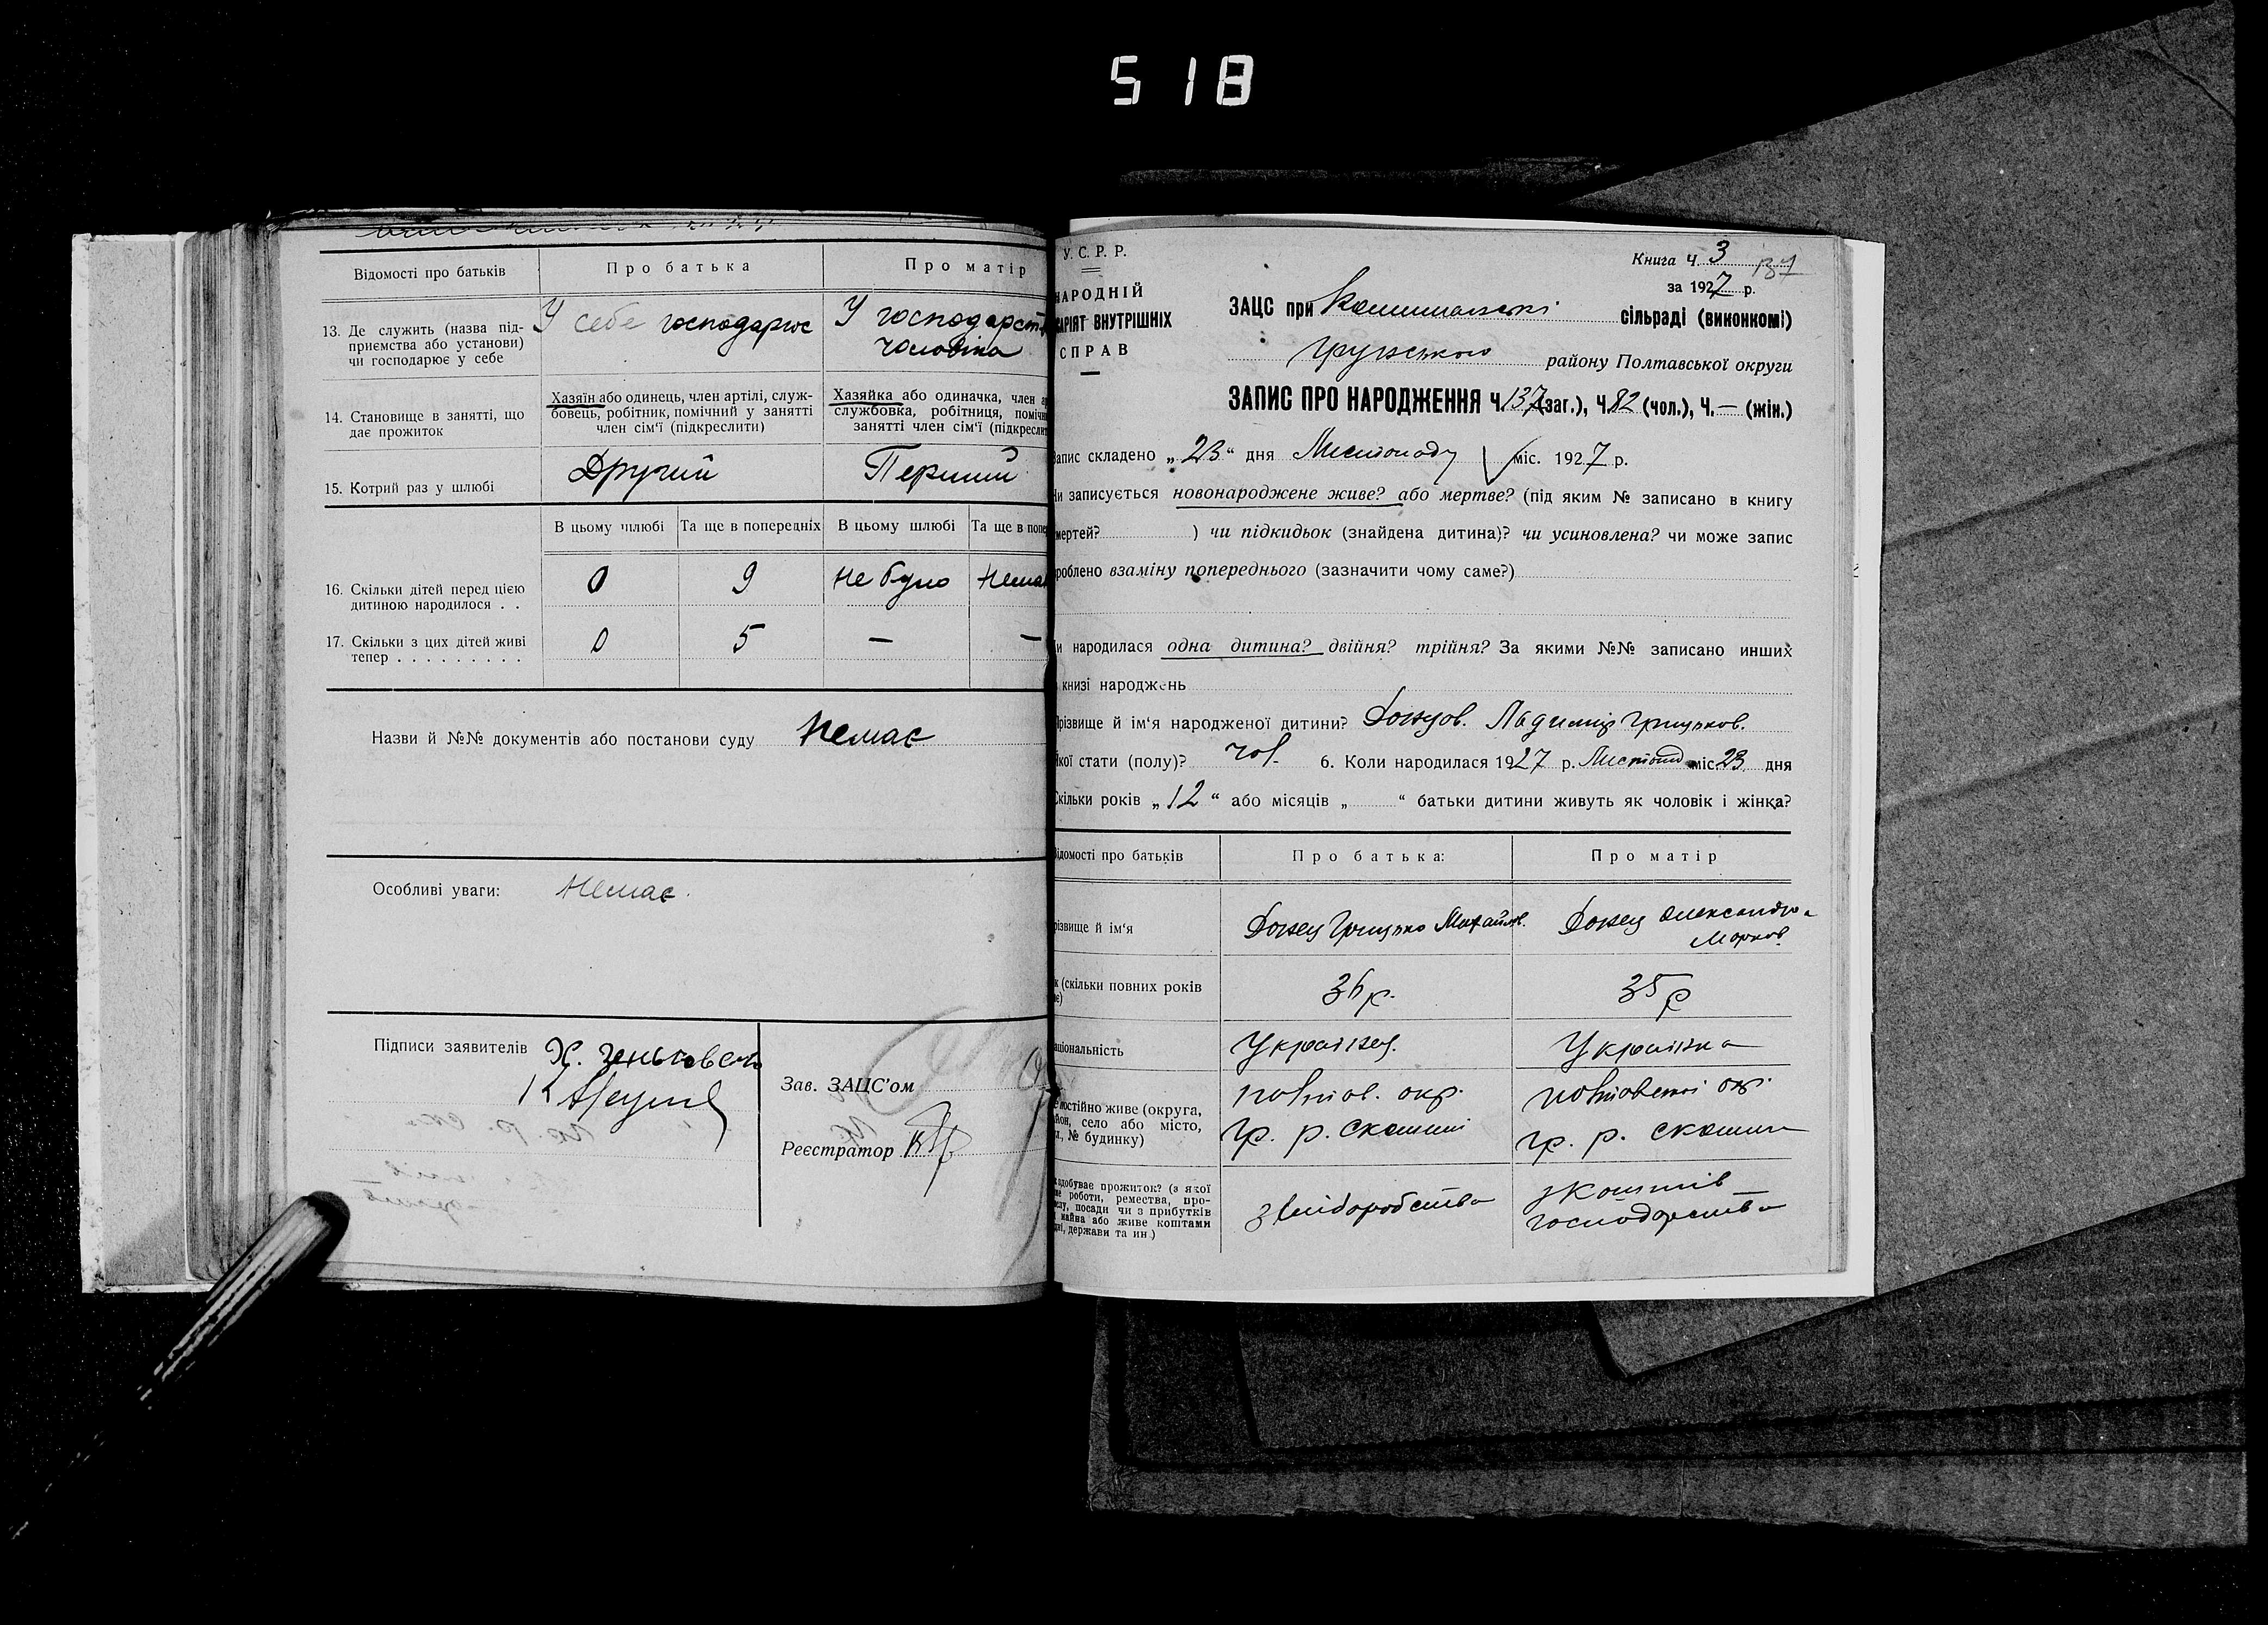 518
Відомості про батьків
Про батька
Про матір
13. Де служить (назва під-
приємства або установи)
чи господарює у себе
У себе господарює
У господарст
чоловіка
14. Становище в занятті, що
дає прожиток
Хазяїн або одинець, член артілі, служ-
бовець, робітник, помічний у занятті
член сім'ї (підкреслити)
Хазяйка або одиначка, член а
службовка, робітниця, помічн
занятті член сім'ї (підкреслит
15. Котрий раз у шлюбі
Другий
Перший
В цьому шлюбі
Та ще в попередніх
В цьому шлюбі
Та ще в попе
16. Скільки дітей перед цією
дитиною народилося . .
0
9
не було
Нема
17. Скільки з цих дітей живі
тепер . . . . . . . . .
0
5
—
—
Назви й №№ документів або постанови суду Немає
Особливі уваги: Немає.
Підписи заявителів
Зав. ЗАЦС'ом
Реєстратор
У. С. Р. Р.
НАРОДНІЙ
АРІЯТ ВНУТРІШНІХ
СПРАВ
Книга ч. 3
137
за 1927 р.
ЗАЦС при сільраді (виконкомі)
Грунського району Полтавської округи
ЗАПИС ПРО НАРОДЖЕННЯ Ч. 137 (заг.), Ч. 82 (чол.), Ч. — (жін.)
Запис складено „23" дня Листопаду міс. 1927 р.
Чи записується новонароджене живе? або мертве? (під яким № записано в книгу
мертей? ) чи підкидьок (знайдена дитина)? чи усиновлена? чи може запис
роблено взаміну попереднього (зазначити чому саме?)
и народилася одна дитина? двійня? трійня? За якими №№ записано инших
книзі народжень
Прізвище й ім'я народженої дитини? Грицьков.
Якої стати (полу)? чол. 6. Коли народилася 1927 р. Листопад міс. 23 дня
Скільки років „12" або місяців „ " батьки дитини живуть як чоловік і жінка?
Відомості про батьків
Про батька:
Про матір
різвище й ім'я
Донец Грицько Михайлов.
Донец Олександра
Марков.
к (скільки повних років
є)
36 р.
35 р
аціональність
Українец.
Українка
е постійно живе (округа,
йон, село або місто,
л, № будинку)
полтов. окр.
гр. р. с кашиш
полтовської окр.
гр. р. с кашиш
к здобуває прожиток? (з якої
ме роботи, ремества, про-
слу, посади чи з прибутків
майна або живе коштами
дні, держави та ин.)
з хліборобства
з коштів
господарства